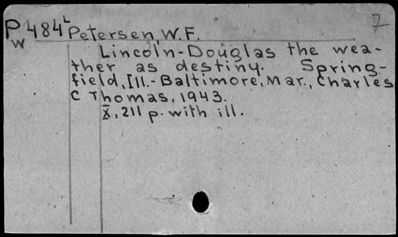 P484L Petersen, W.F. 7
W
Lincoln-Douglas the wea-
ther as destiny. Spring-
field, Ill.-Baltimore, Mar., Charles
C Thomas, 1943.
X, 211 p. with ill.